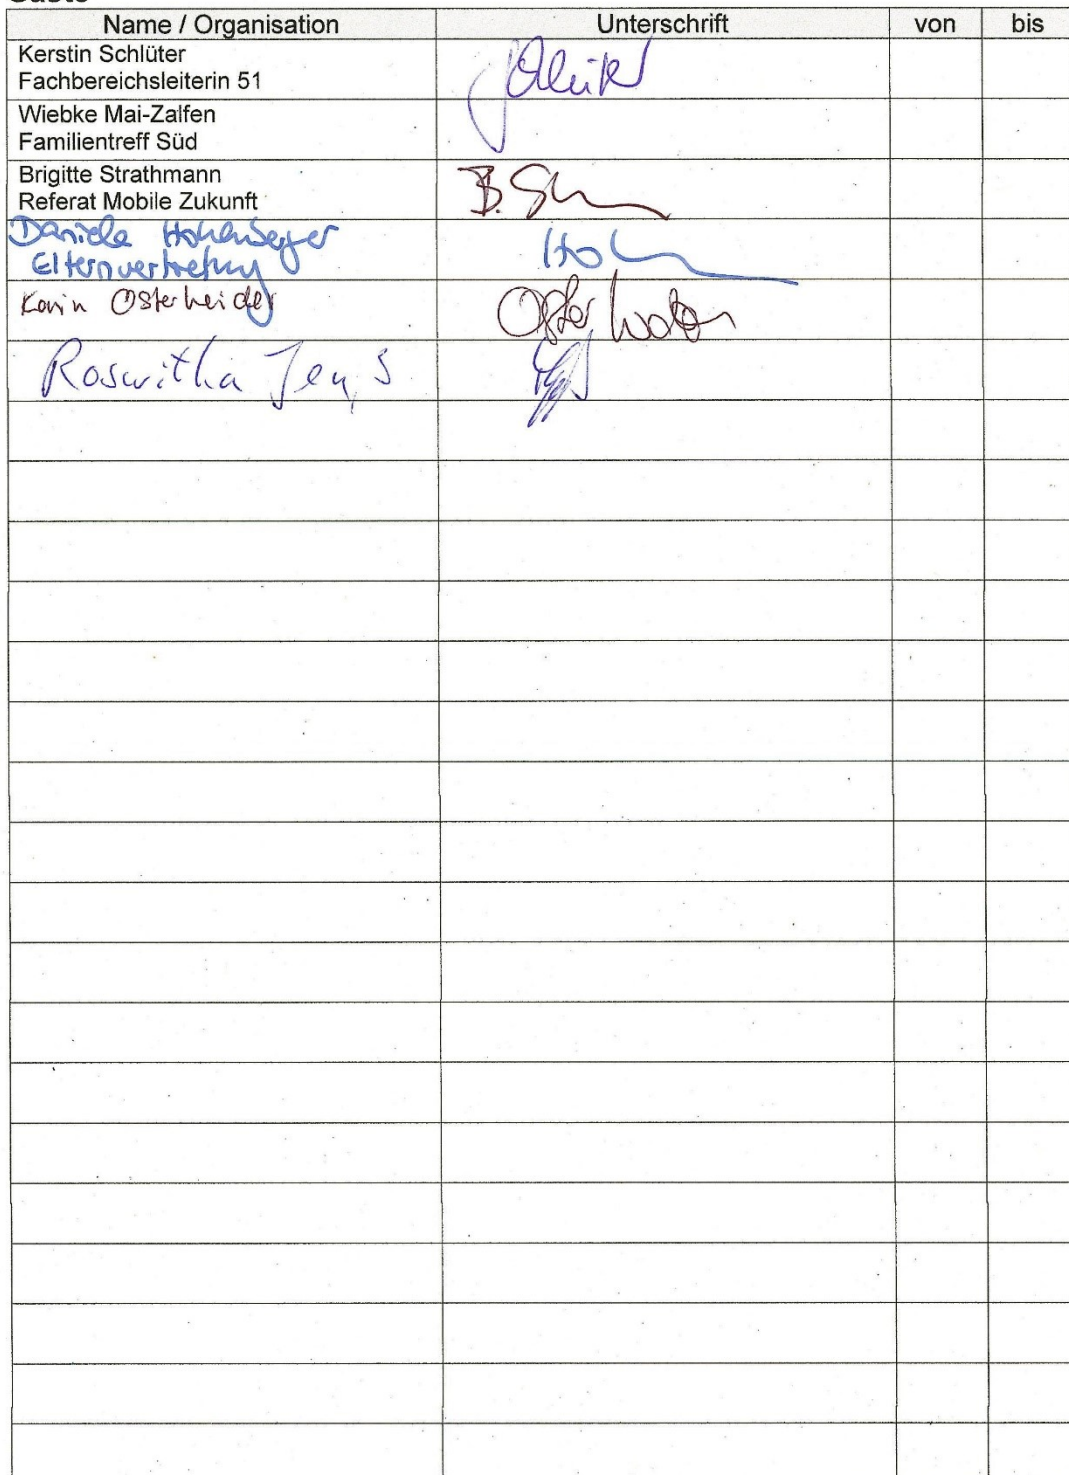 Name / Organisation Unterschrift von bis
Kerstin Schlüter
Fachbereichsleiterin 51
Wiebke Mai-Zalfen
Familientreff Süd
Brigitte Strathmann
Referat Mobile Zukunft
B. 
Daniela Hohenberger
Elternvertretung
Karin Osterheider
Osterheider
Roswitha